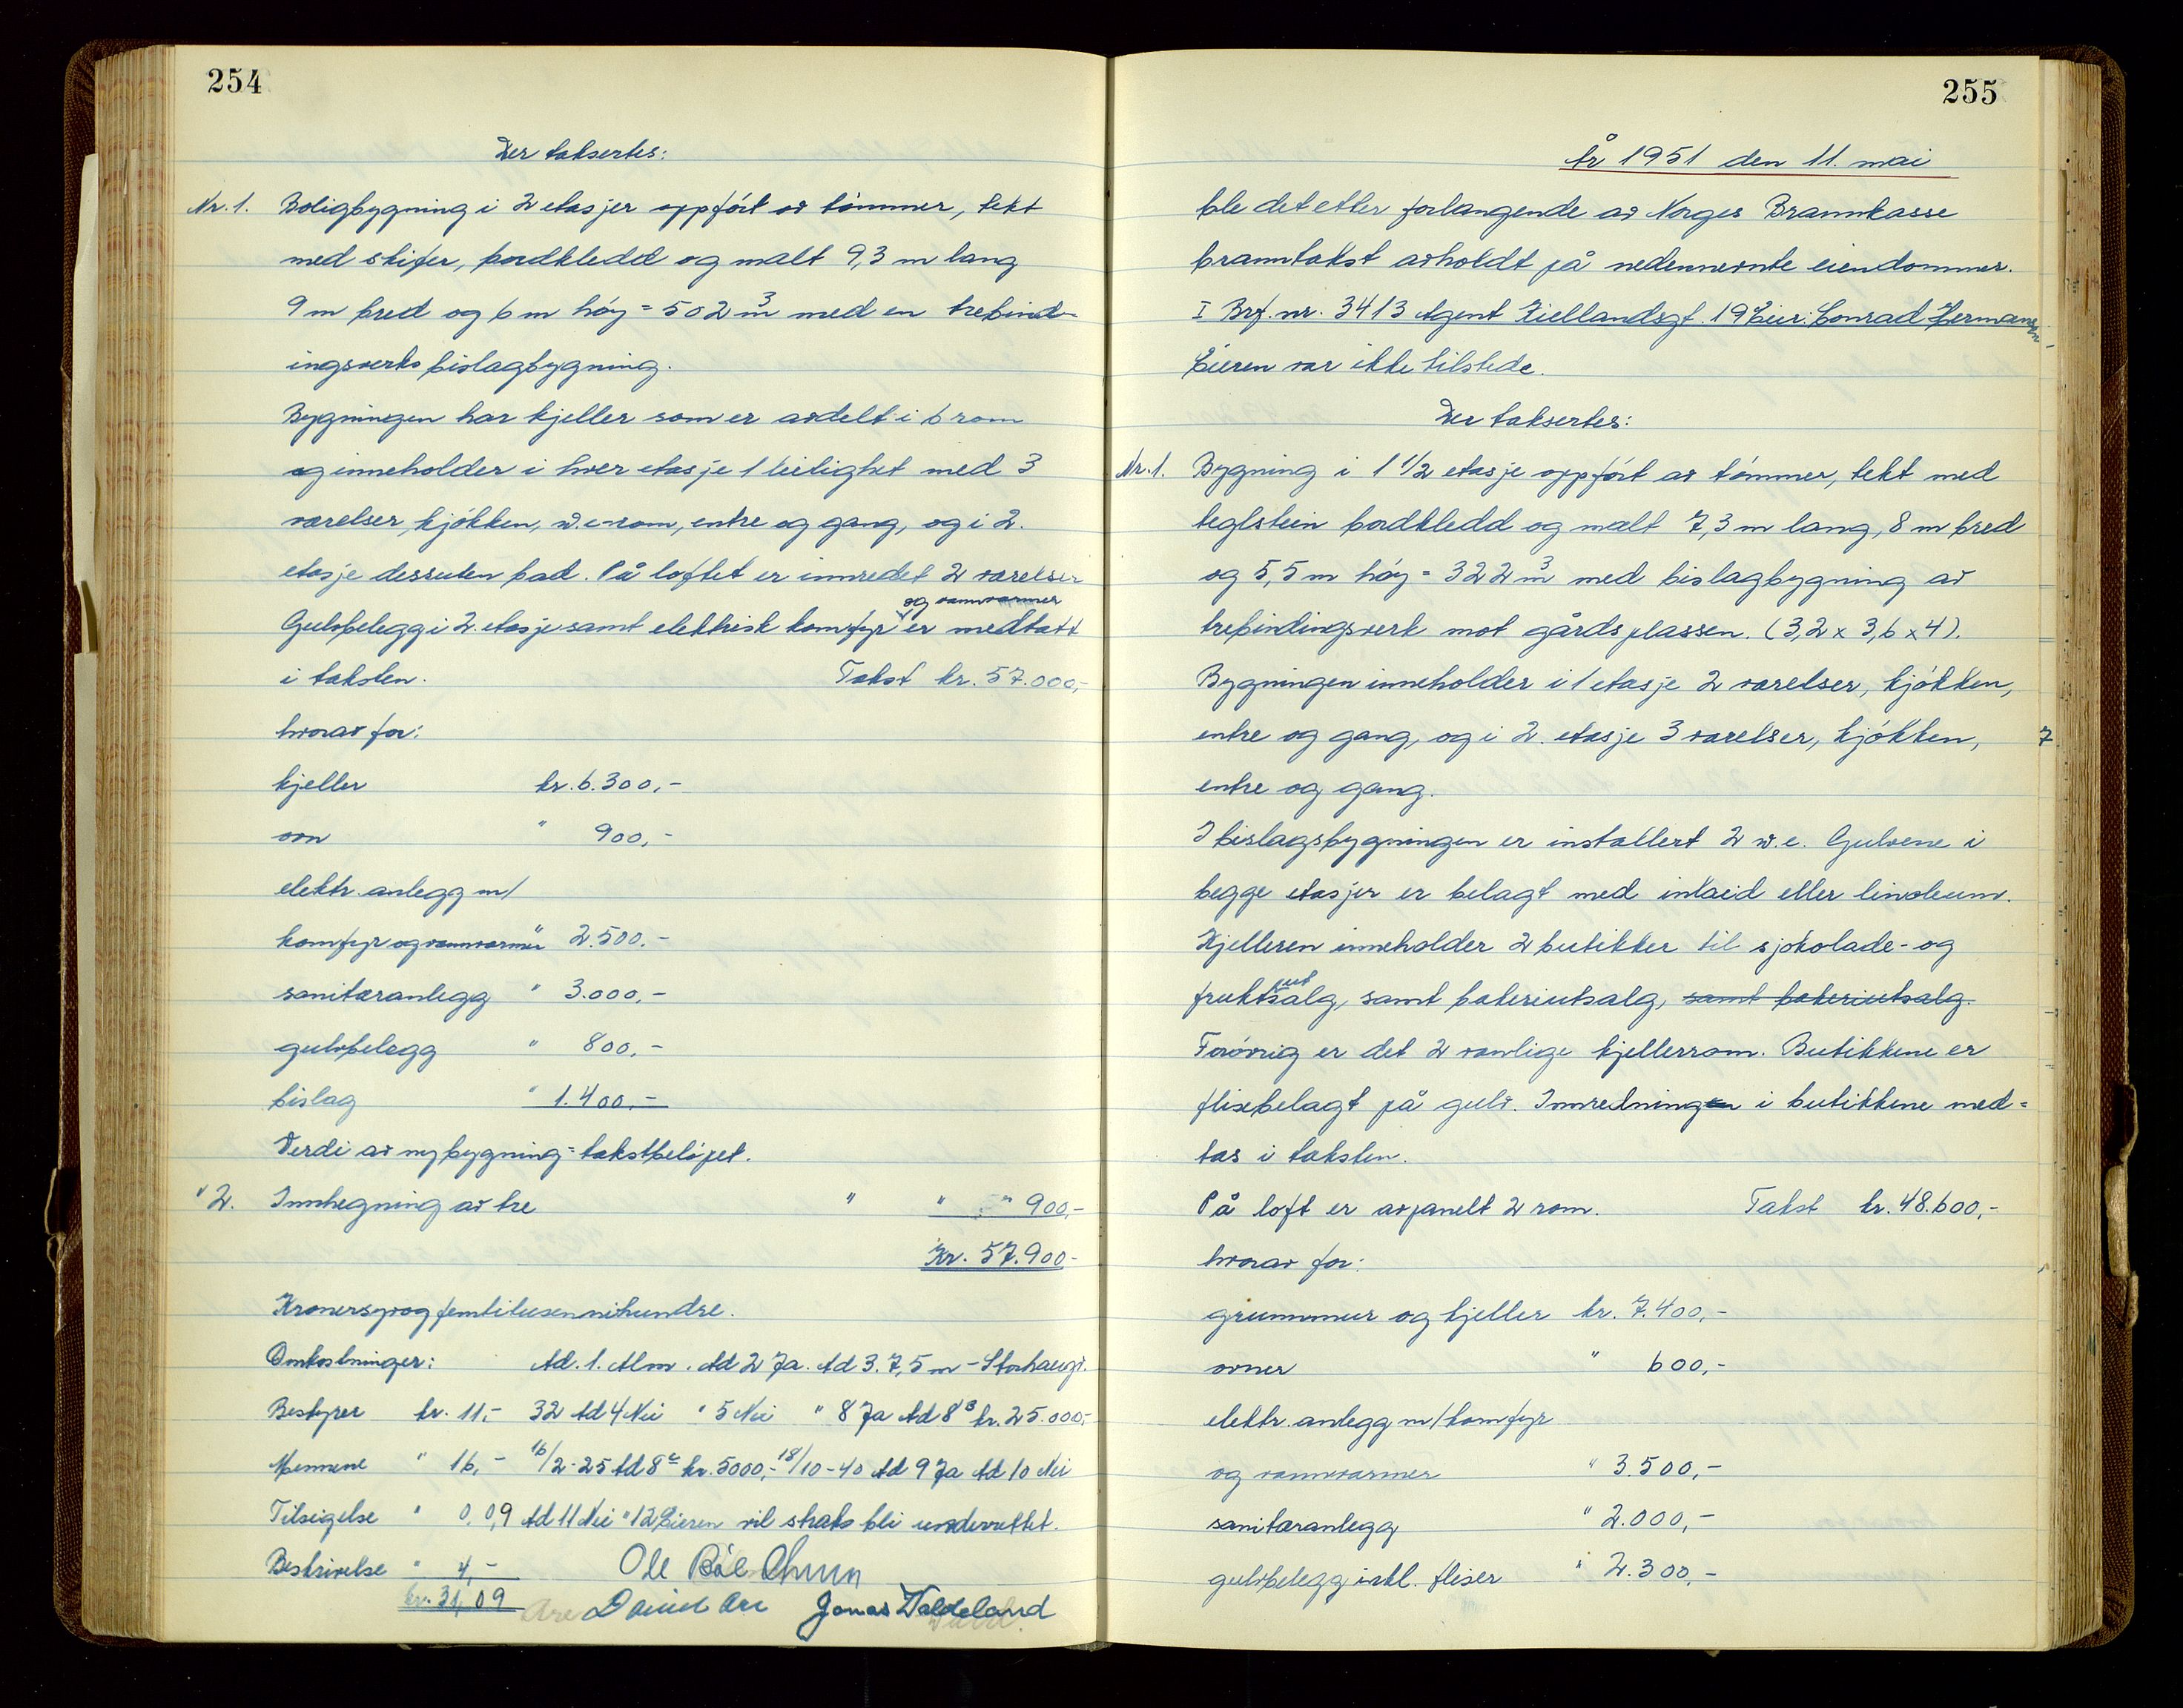 254
Der taksertes:
Nr. 1. Boligbygning i 2 etasjer oppført av tømmer, tekt
med skifer, bordkledd og malt 9,3 m lang
9 m bred og 6 m høy = 502 m³ med en trebind-
ingsverks bislagbygning.
Bygningen har kjeller som er avdelt i 6 rom
og inneholder i hver etasje 1 leilighet med 3
værelser, kjøkken, w.c-rom, entre og gang, og i 2.
etasje dessuten bad. På loftet er innredet 2 værelser
og vannvarmer
Gulvbelegg i 2. etasje samt elektrisk komfyr er medtatt
i taksten. Takst kr. 57.000,-
hvorav for:
kjeller kr. 6.300,-
ovn " 900,-
elektr. anlegg m/
komfyr og vannvarmer " 2.500.-
sanitæranlegg " 3.000,-
gulvbelegg " 800,-
bislag " 1.400,-
Verdi av nybygning = takstbeløpet.
" 2. Innhegning av tre " " " 900,-
Kr. 57.900-
Kroner syv og femtitusen nihundre.
Omkostninger: Ad. 1. Alm. Ad 2 Ja. Ad 3. 7,5 m - Storhaugv.
Bestyrer kr. 11,- 32 Ad 4 Nei " 5 Nei " 8 Ja Ad 8ᴮ kr. 25.000,-
Mennene " 16,- 16/2-25 Ad 8ᶜ kr. 5000,- 18/10-40 Ad 9 Ja Ad 10 Nei
Tilsigelse " 0,09 Ad 11 Nei " 12 Eieren vil straks bli underrettet.
Beskrivelse " 4,-
kr. 31,09 Daniel Are Jonas Waldeland
255
År 1951 den 11. mai
ble det etter forlangende av Norges Brannkasse
branntakst avholdt på nedennevnte eiendommer.
I Brf. nr. 3413 Agent Kiellandsgt. 19 Eier: Conrad Hermansen
Eieren var ikke tilstede.
Der taksertes:
Nr. 1. Bygning i 1 1/2 etasje oppført av tømmer, tekt med
teglstein bordkledd og malt 7,3 m lang, 8 m bred
og 5,5 m høy = 322 m³ med bislagbygning av
trebindingsverk mot gårdsplassen. (3,2 x 3,6 x 4).
Bygningen inneholder i 1 etasje 2 værelser, kjøkken,
entre og gang, og i 2. etasje 3 værelser, kjøkken, 7
entre og gang.
I bislagsbygningen er installert 2 w.c. Gulvene i
begge etasjer er belagt med inlaid eller linoleum.
Kjelleren inneholder 2 butikker til sjokolade- og
fruktutsalg, samt bakeriutsalg, samt bakeriutsalg.
Forøvrig er det 2 vanlige kjellerrom. Butikkene er
flisebelagt på gulv. Innredning i butikkene med=
tas i taksten.
På loft er avpanelt 2 rom. Takst kr. 48.600,-
hvorav for:
grunnmur og kjeller kr. 7.400,-
ovner " 600,-
elektr. anlegg m/komfyr
og vannvarmer " 3.500,-
sanitæranlegg " 2.000,-
gulvbelegg inkl. fliser " 2.300,-